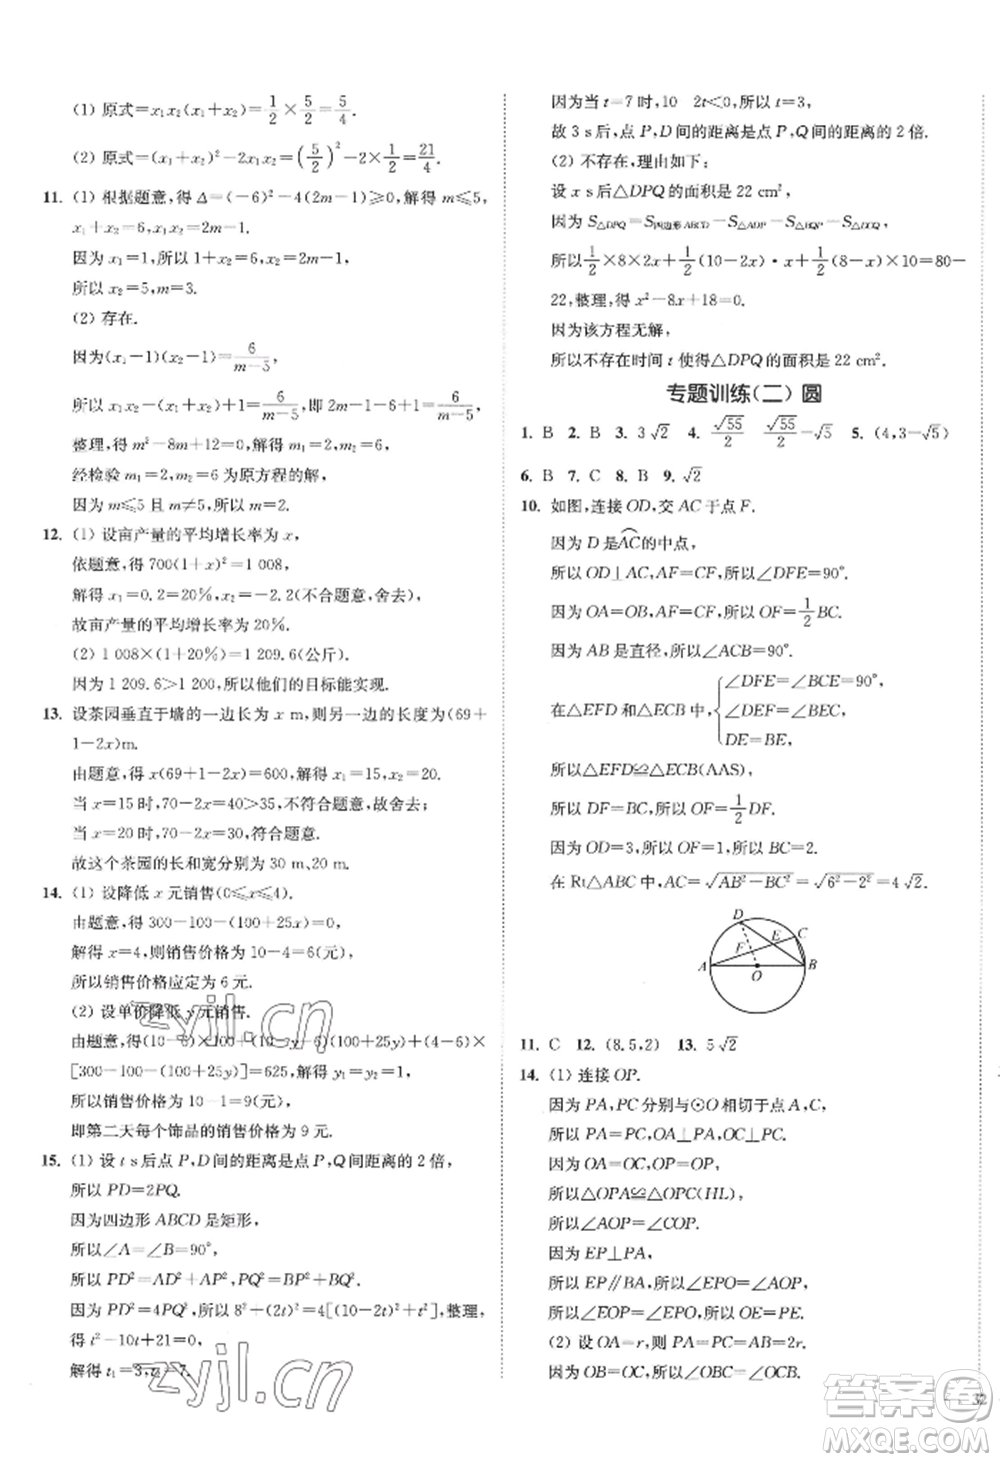 (1) 原式=x₁x₂(x₁+x₂)=1/2×5/2=5/4.
(2) 原式=(x₁+x₂)²-2x₁x₂=(5/2)²-2×1/2=21/4.
11. (1) 根据题意,得 Δ=(-6)²-4(2m-1)≥0,解得 m≤5,
x₁+x₂=6,x₁x₂=2m-1.
因为 x₁=1,所以 1+x₂=6,x₂=2m-1.
所以 x₂=5,m=3.
(2) 存在.
因为(x₁-1)(x₂-1)=6/(m-5),
所以 x₁x₂-(x₁+x₂)+1=6/(m-5),即 2m-1-6+1=6/(m-5),
整理,得 m²-8m+12=0,解得 m₁=2,m₂=6.
经检验 m₁=2,m₂=6 为原方程的解.
因为 m≤5 且 m≠5,所以 m=2.
12. (1) 设亩产量的平均增长率为 x,
依题意,得 700(1+x)²=1 008,
解得 x₁=0.2=20%,x₂=-2.2(不合题意,舍去),
故亩产量的平均增长率为 20%.
(2) 1 008×(1+20%)=1 209.6(公斤).
因为 1 209.6>1 200,所以他们的目标能实现.
13. 设茶园垂直于墙的一边长为 x m,则另一边的长度为(69+
1-2x)m.
由题意,得 x(69+1-2x)=600,解得 x₁=15,x₂=20.
当 x=15 时,70-2x=40>35,不符合题意,故舍去;
当 x=20 时,70-2x=30,符合题意.
故这个茶园的长和宽分别为 30 m、20 m.
14. (1) 设降低 x 元销售(0≤x≤4).
由题意,得 300-100-(100+25x)=0,
解得 x=4,则销售价格为 10-4=6(元),
所以销售价格应定为 6 元.
(2) 设单价降低 y 元销售.
由题意,得(10-6)×100+(10-6-y)(100+25y)+(4-6)×
[300-100-(100+25y)]=300,解得 y₁=y₂=1,
所以销售价格为 10-1=9(元),
即第二天每个饰品的销售价格为 9 元.
15. (1) 设 t s后点 P,D间的距离是点 P,Q间距离的 2 倍,
所以 PD=2PQ.
因为四边形 ABCD 是矩形,
所以∠A=∠B=90°,
所以 PD²=AD²+AP²,PQ²=BP²+BQ².
因为 PD²=4PQ²,所以 8²+(2t)²=4[(10-2t)²+t²],整理,
得 t²-10t+21=0,
解得 t₁=3,t₂=7.
因为当 t=7 时,10 2t<0,所以 t=3,
故 3 s后,点 P,D 间的距离是点 P,Q 间的距离的 2 倍.
(2) 不存在,理由如下:
设 x s后△DPQ 的面积是 22 cm²,
因为 S△DPQ=S四边形ABCD-S△ADP-S△BQP-S△CDQ,
所以1/2×8×2x+1/2(10-2x)·x+1/2(8-x)×10=80-
22,整理,得 x²-8x+18=0.
因为该方程无解,
所以不存在时间 t 使得△DPQ 的面积是 22 cm².
专题训练(二) 圆
1. B 2. B 3. 3√2 4. √55/2 √55/2-√5 5. (4,3-√5)
6. B 7. C 8. B 9. √2
10. 如图,连接 OD,交 AC 于点 F.
因为 D 是AC⌒的中点,
所以 OD⊥AC,AF=CF,所以∠DFE=90°.
因为 OA=OB,AF=CF,所以 OF=1/2BC.
因为 AB 是直径,所以∠ACB=90°.
在△EFD 和△ECB 中,{∠DFE=∠BCE=90°,
∠DEF=∠BEC,
DE=BE,
所以△EFD≌△ECB(AAS),
所以 DF=BC,所以 OF=1/2DF.
因为 OD=3,所以 OF=1,所以 BC=2.
在 Rt△ABC 中,AC=√(AB²-BC²)=√(6²-2²)=4√2.
D
E
C
F
A
O
B
11. C 12. (8.5,2) 13. 5√2
14. (1) 连接 OP.
因为 PA,PC 分别与⊙O 相切于点 A,C,
所以 PA=PC,OA⊥PA,OC⊥PC.
因为 OA=OC,OP=OP,
所以△OPA≌△OPC(HL),
所以∠AOP=∠COP.
因为 EP⊥PA,
所以 EP∥BA,所以∠EPO=∠AOE,
所以∠EOP=∠EPO,所以 OE=PE.
(2) 设 OA=r,则 PA=PC=AB=2r.
因为 OB=OC,所以∠OBC=∠OCB.
zyjl.cn
zyjl.cn
答案圈
MXQE.COM
32